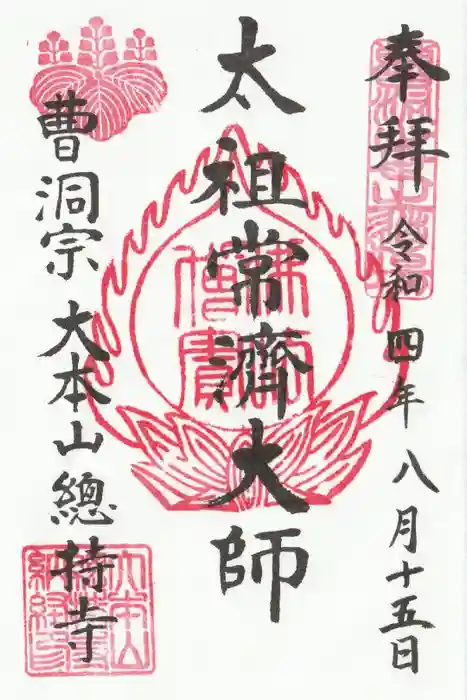 奉拝 令和四年八月十五日
太祖常濟大師
曹洞宗 大本山 總持寺